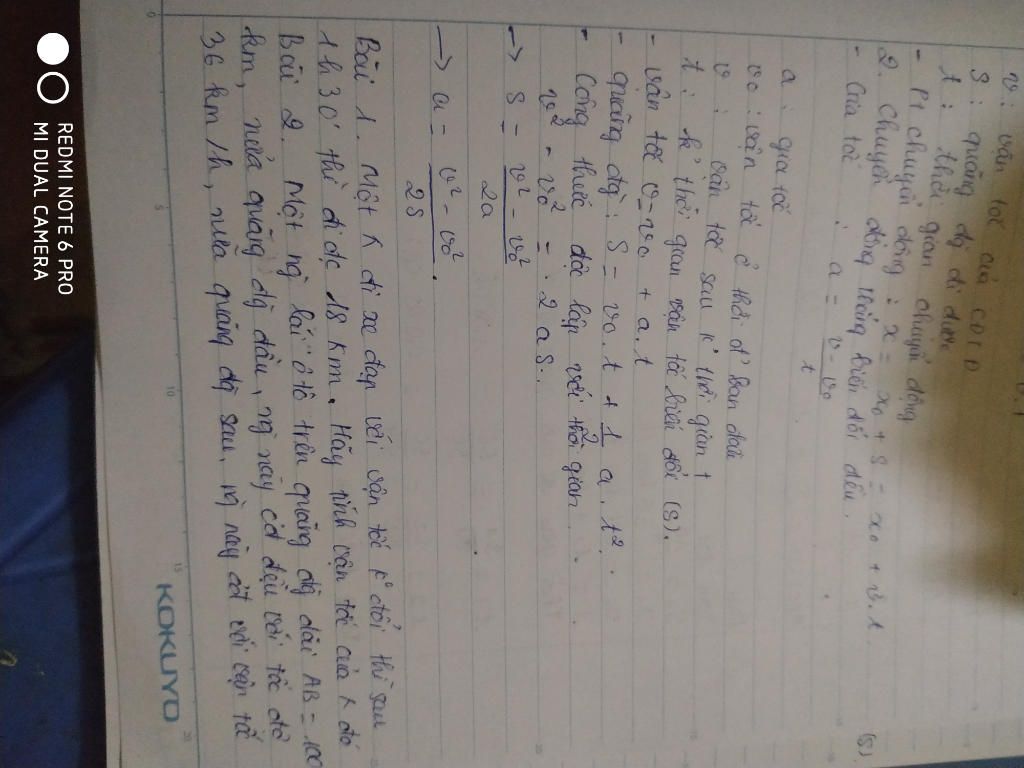 v : vận tốc của CĐTD
S : quãng đg đi được
t : thời gian chuyển động
- Pt chuyển động : x = x₀ + S = x₀ + v.t
2. Chuyển động thẳng biến đổi đều.
- Gia tốc : a = v - v₀ / t (S)
a : gia tốc
v₀ : vận tốc ở thời đ' ban đầu
v : vận tốc sau k' thời gian t
t : k' thời gian vận tốc biến đổi (S).
- vận tốc v = v₀ + a.t
- quãng đg : S = v₀.t + 1/2 a.t².
- Công thức độc lập với thời gian.
v² - v₀² = 2 a S.
→ S = v² - v₀² / 2a
→ a = v² - v₀² / 2S .
Bài 1. Một đi xe đạp với vận tốc k° đổi thì sau
1h 30' thì đi đc 18 km. Hãy tính vận tốc của đó
Bài 2. Một ng lái ô tô trên quãng đg dài AB = 100
km, nửa quãng đg đầu, ng này cđ đều với tốc độ
36 km/h, nửa quãng đg sau, ng này cđ với vận tốc
KOKUYO
REDMI NOTE 6 PRO
MI DUAL CAMERA